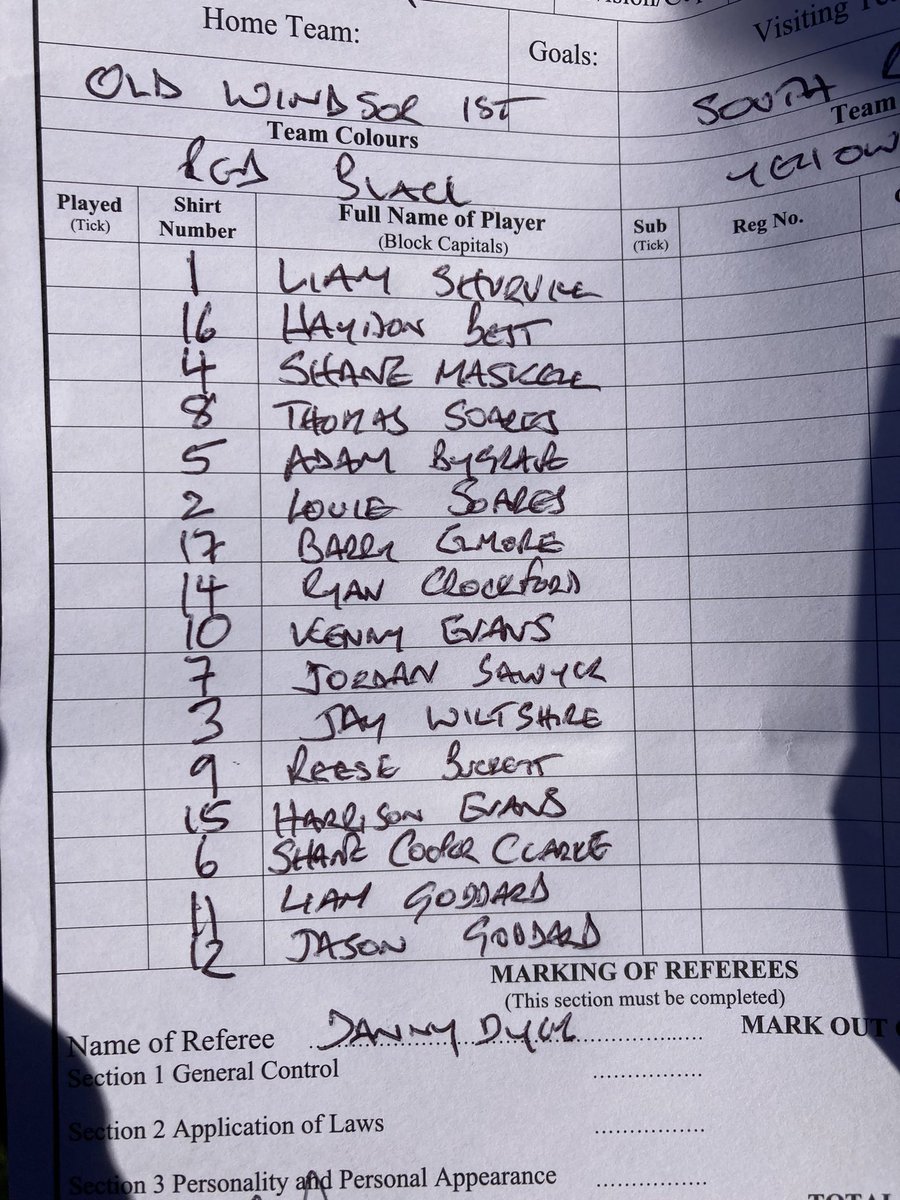 Home Team:
Goals:
Visiting
OLD WINDSOR 1ST
SOUTH
Team Colours
Team
RED BLACK
YELLOW
Played (Tick) Shirt Number Full Name of Player (Block Capitals) Sub (Tick) Reg No.
1 LIAM
16 HAYDON BEST
4 SHANE MASKELL
8 THOMAS SOARES
5 ADAM BYGRAVE
2 LOUIE SOARES
17 BARRY GMORE
14 RYAN CROCKFORD
10 KENNY EVANS
7 JORDAN SAWYER
3 JAY WILTSHIRE
9 REESE BURRETT
15 HARRISON EVANS
6 SHANE COOPER CLARKE
11 LIAM GODDARD
12 JASON GODDARD
MARKING OF REFEREES
(This section must be completed)
Name of Referee DANNY DYER MARK OUT
Section 1 General Control
Section 2 Application of Laws
Section 3 Personality and Personal Appearance